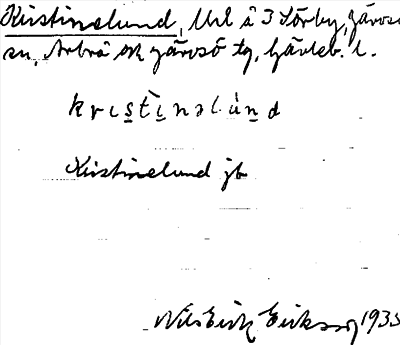 Kristinelund, Url å 3 Sörby, Järvsö
sn, Arbrå ok Järvsö tg, Gävleb. l.
kristinəlùnd
Kristinelund jb
Nils Erik Eriksson 1935